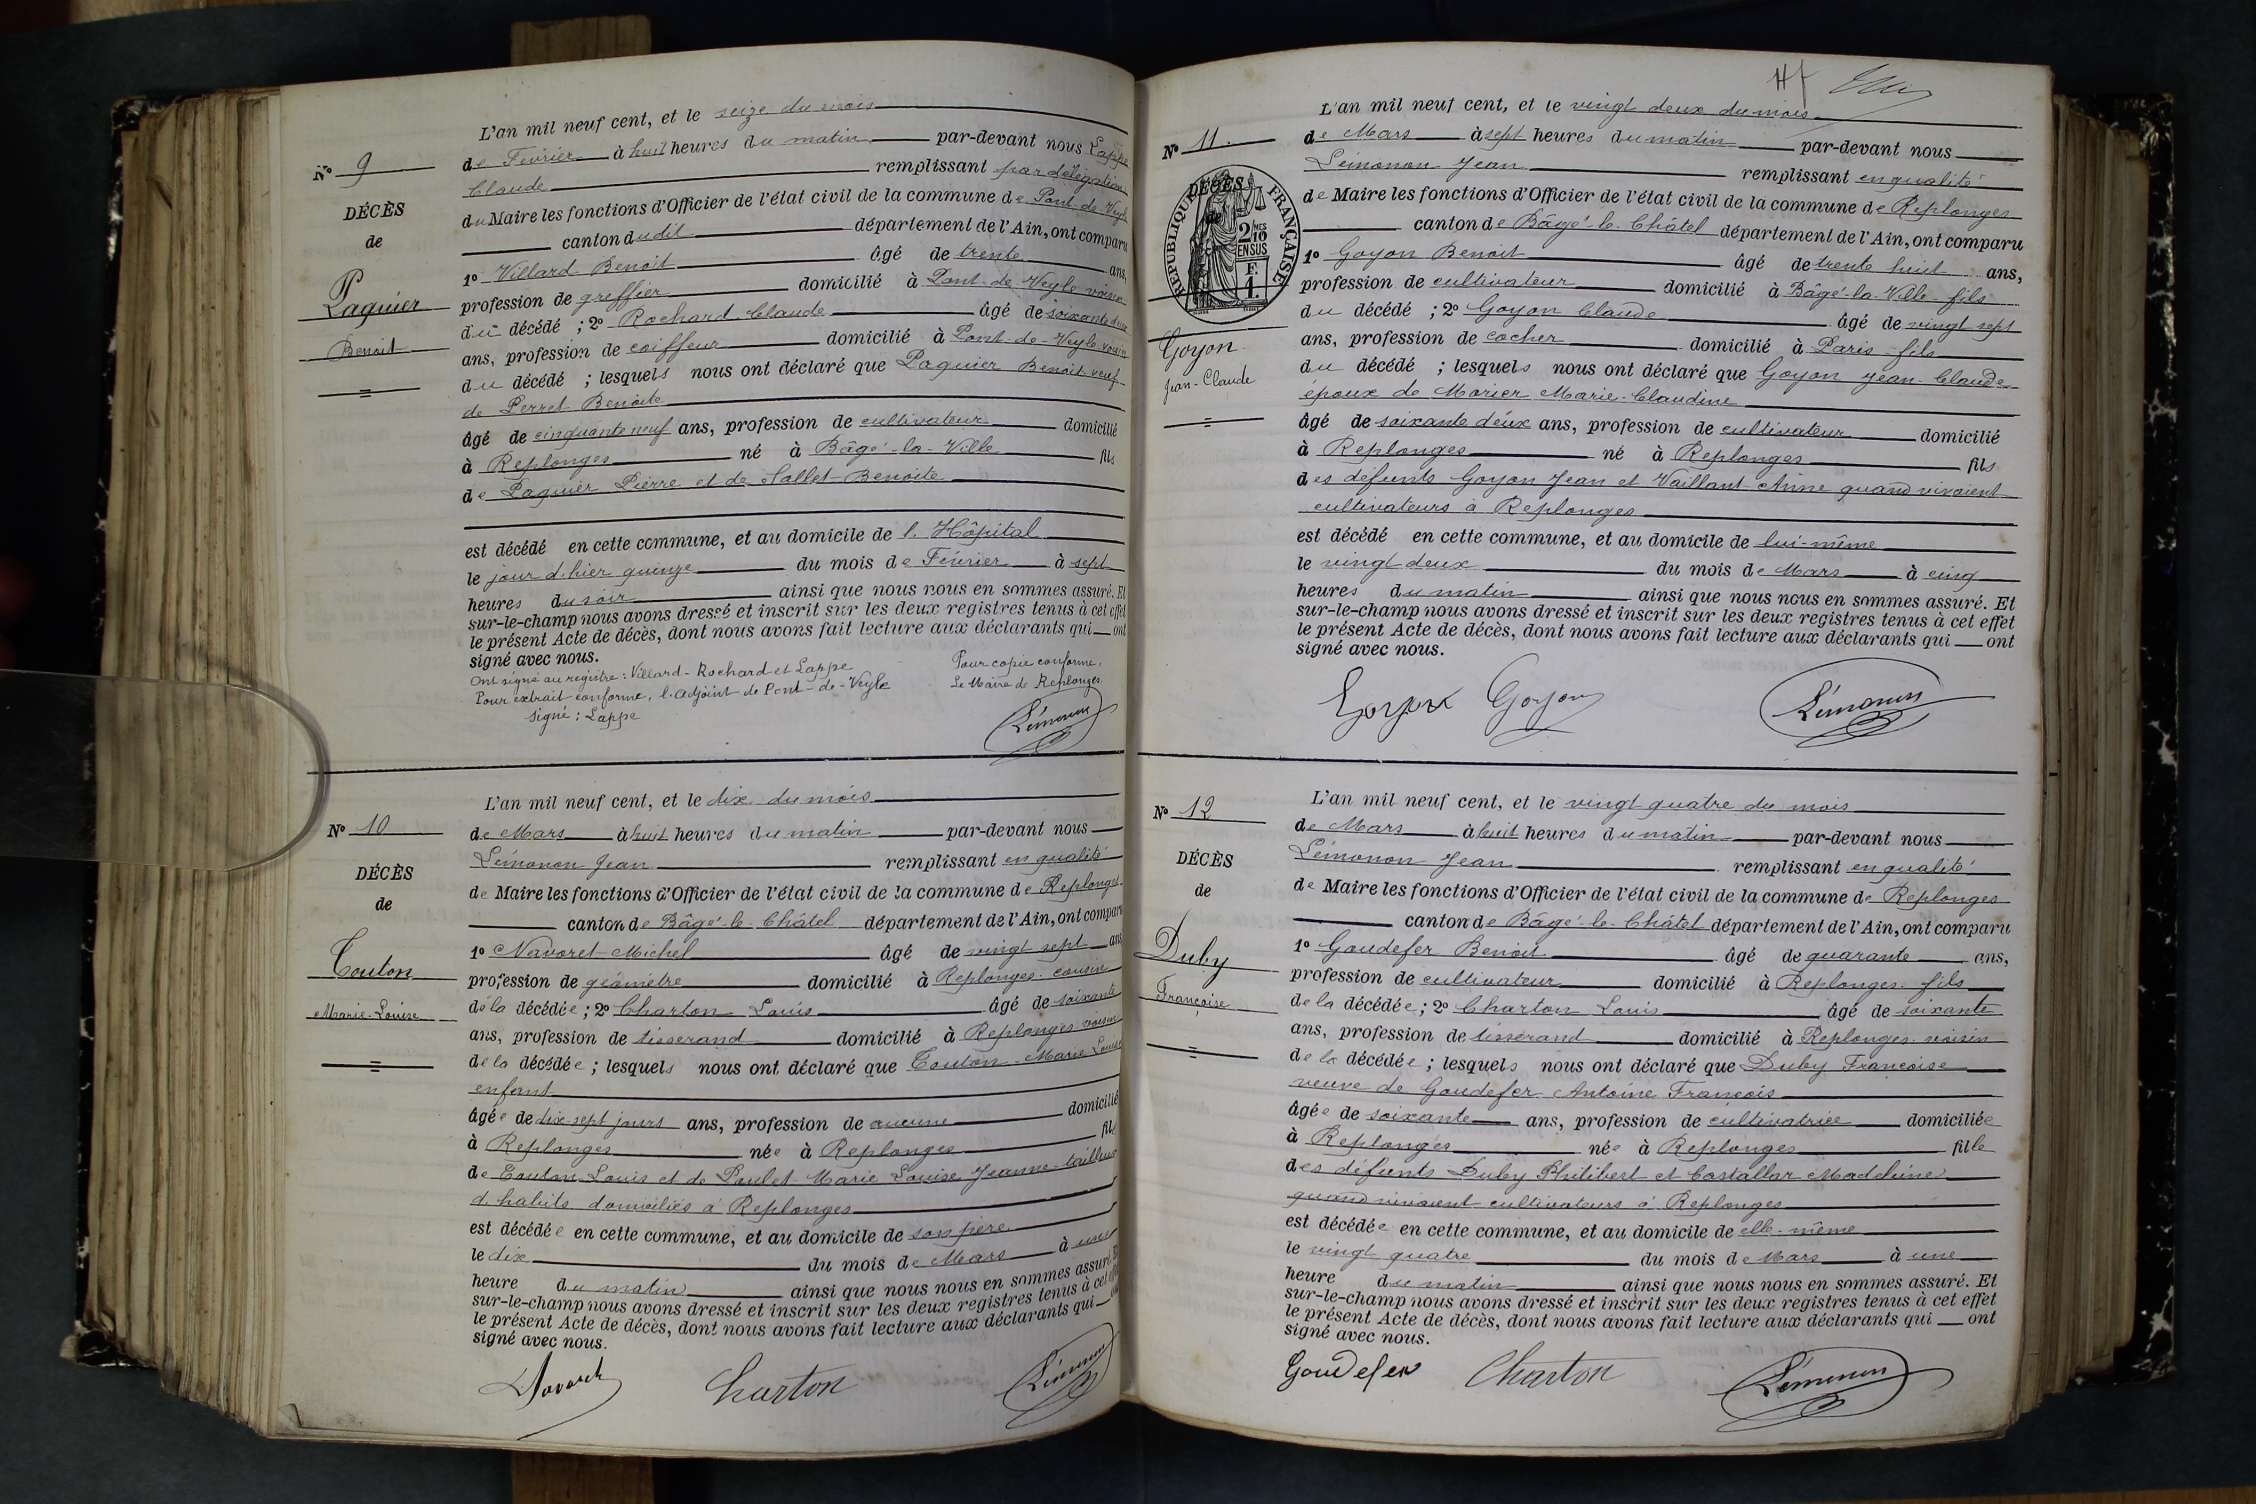 L'an mil neuf cent, et le seize du mois
N° 9
de Février à huit heures du matin par-devant nous Lappe
Claude remplissant par délégation
DÉCÈS
du Maire les fonctions d'Officier de l'état civil de la commune de Pont-de-Veyle
de
canton dudit département de l'Ain, ont comparu
1° Villard Benoit âgé de trente ans,
Paquier
profession de greffier domicilié à Pont-de-Veyle voisin
du décédé ; 2° Rochard Claude âgé de soixante deux
Benoit
ans, profession de coiffeur domicilié à Pont-de-Veyle voisin
du décédé ; lesquels nous ont déclaré que Paquier Benoit veuf
de Perret Benoite
âgé de cinquante neuf ans, profession de cultivateur domicilié
à Replonges né à Bâgé-la-Ville fils
de Paquier Pierre et de Sallet Benoite
est décédé en cette commune, et au domicile de l'Hôpital
le jour d'hier quinze du mois de Février à sept
heures du soir ainsi que nous nous en sommes assuré. Et
sur-le-champ nous avons dressé et inscrit sur les deux registres tenus à cet effet
le présent Acte de décès, dont nous avons fait lecture aux déclarants qui ont
signé avec nous.
Ont signé au registre : Villard - Rochard et Lappe
Pour extrait conforme, l'adjoint de Pont-de-Veyle
signé : Lappe
Pour copie conforme,
Le Maire de Replonges
Lémonon
L'an mil neuf cent, et le dix du mois
N° 10
de Mars à huit heures du matin par-devant nous
Lémonon Jean remplissant en qualité
DÉCÈS
de Maire les fonctions d'Officier de l'état civil de la commune de Replonges
de
canton de Bâgé-le-Châtel département de l'Ain, ont comparu
1° Navoret Michel âgé de vingt sept ans
Touton
profession de géomètre domicilié à Replonges cousin
Marie-Louise
de la décédée ; 2° Charton Louis âgé de soixante
ans, profession de tisserand domicilié à Replonges voisin
de la décédée ; lesquels nous ont déclaré que Touton Marie Louise
enfant
âgée de dix-sept jours ans, profession de aucune domicilié
à Replonges née à Replonges fille
de Touton Louis et de Poulet Marie Louise Jeanne tailleur
d'habits domiciliés à Replonges
est décédée en cette commune, et au domicile de son père
le dix du mois de Mars à une
heure du matin ainsi que nous nous en sommes assuré. Et
sur-le-champ nous avons dressé et inscrit sur les deux registres tenus à cet effet
le présent Acte de décès, dont nous avons fait lecture aux déclarants qui ont
signé avec nous.
Navoret Charton Lémonon
L'an mil neuf cent, et le vingt deux du mois
N° 11.
de Mars à sept heures du matin par-devant nous
Lémonon Jean remplissant en qualité
DÉCÈS
de
RÉPUBLIQUE FRANÇAISE
2 MES
10
EN SUS
F.
1.
de Maire les fonctions d'Officier de l'état civil de la commune de Replonges
canton de Bâgé-le-Châtel département de l'Ain, ont comparu
1° Goyon Benoit âgé de trente huit ans,
profession de cultivateur domicilié à Bâgé-la-Ville fils
du décédé ; 2° Goyon Claude âgé de vingt sept
Goyon
ans, profession de cocher domicilié à Paris fils
Jean-Claude
du décédé ; lesquels nous ont déclaré que Goyon Jean-Claude
époux de Morier Marie-Claudine
âgé de soixante deux ans, profession de cultivateur domicilié
à Replonges né à Replonges fils
des défunts Goyon Jean et Vaillant Anne quand vivaient
cultivateurs à Replonges
est décédé en cette commune, et au domicile de lui-même
le vingt deux du mois de Mars à cinq
heures du matin ainsi que nous nous en sommes assuré. Et
sur-le-champ nous avons dressé et inscrit sur les deux registres tenus à cet effet
le présent Acte de décès, dont nous avons fait lecture aux déclarants qui ont
signé avec nous.
Goyon Goyon Lémonon
L'an mil neuf cent, et le vingt quatre du mois
N° 12
de Mars à huit heures du matin par-devant nous
Lémonon Jean remplissant en qualité
DÉCÈS
de Maire les fonctions d'Officier de l'état civil de la commune de Replonges
de
canton de Bâgé-le-Châtel département de l'Ain, ont comparu
Duby
1° Goudefer Benoit âgé de quarante ans,
profession de cultivateur domicilié à Replonges fils
Françoise
de la décédée ; 2° Charton Louis âgé de soixante
ans, profession de tisserand domicilié à Replonges voisin
de la décédée ; lesquels nous ont déclaré que Duby Françoise
veuve de Goudefer Antoine François
âgée de soixante ans, profession de cultivatrice domiciliée
à Replonges née à Replonges fille
des défunts Duby Philibert et Castallar Madeleine
quand vivaient cultivateurs à Replonges
est décédée en cette commune, et au domicile de elle-même
le vingt quatre du mois de Mars à une
heure du matin ainsi que nous nous en sommes assuré. Et
sur-le-champ nous avons dressé et inscrit sur les deux registres tenus à cet effet
le présent Acte de décès, dont nous avons fait lecture aux déclarants qui ont
signé avec nous.
Goudefer Charton Lémonon